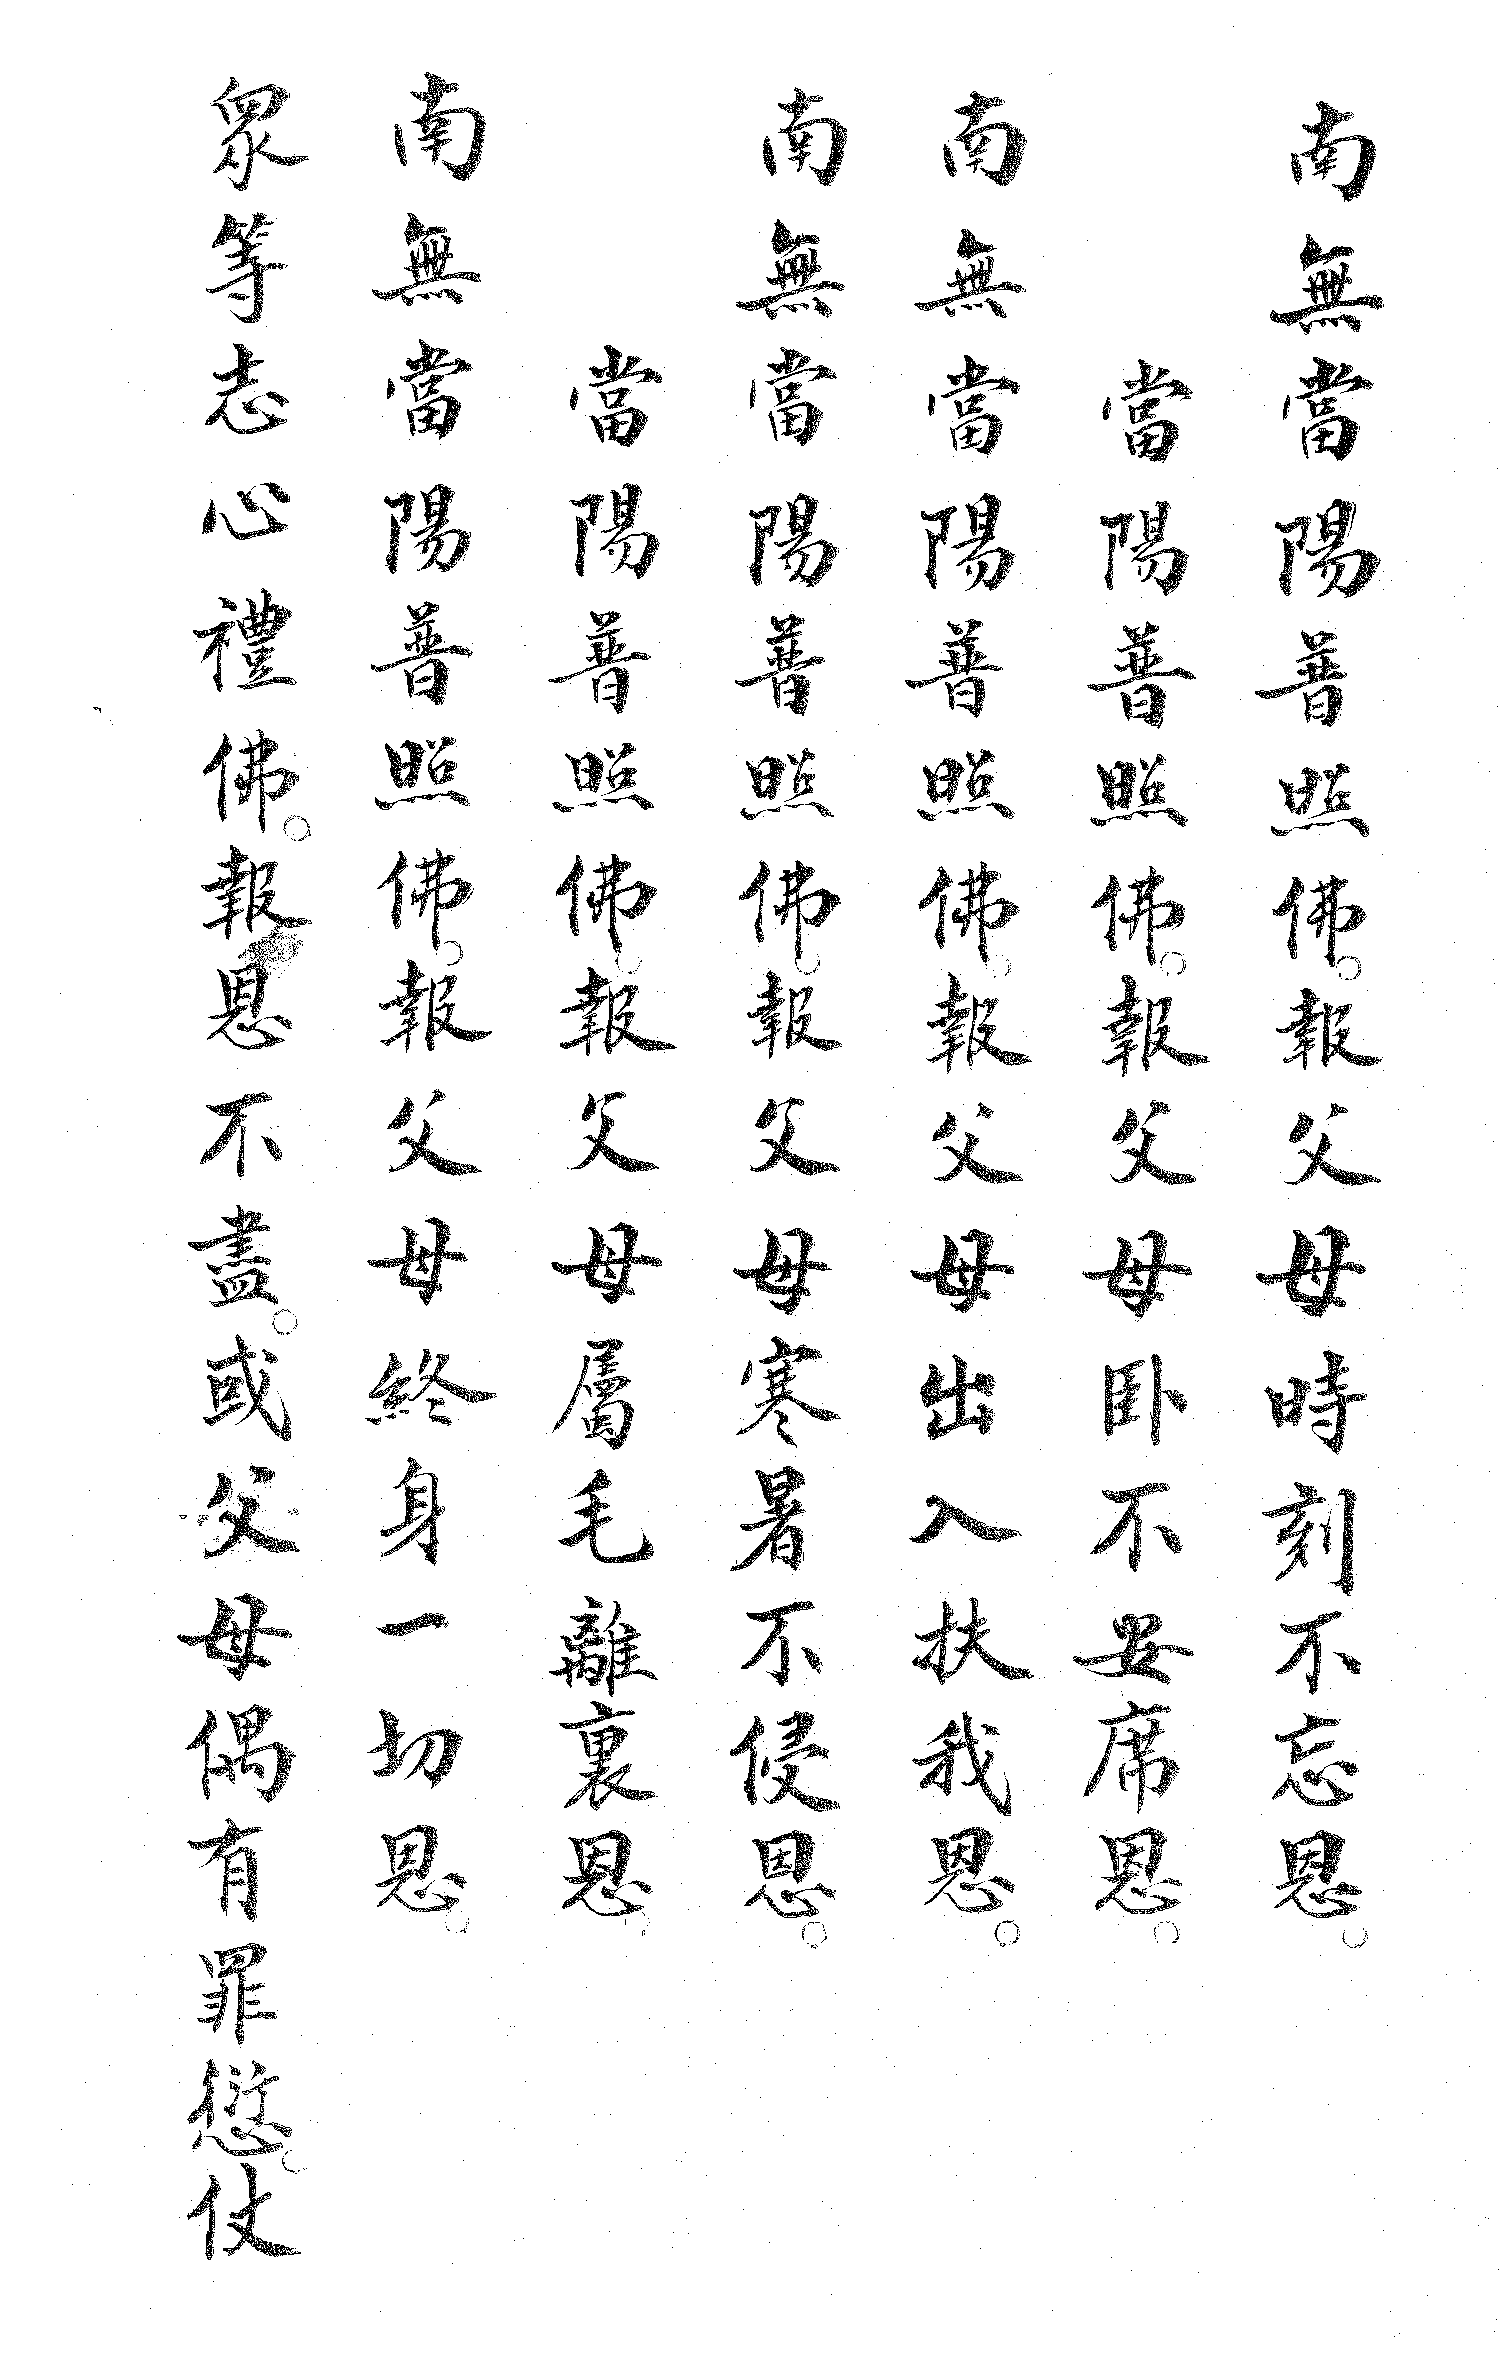 南無當陽普照佛。報父母時刻不忘恩。
當陽普照佛。報父母卧不安席恩。
南無當陽普照佛。報父母出入扶我恩。
南無當陽普照佛。報父母寒暑不侵恩。
當陽普照佛。報父母屬毛離裏恩。
南無當陽普照佛。報父母終身一切恩。
眾等志心禮佛。報恩不盡。或父母偶有罪愆。仗